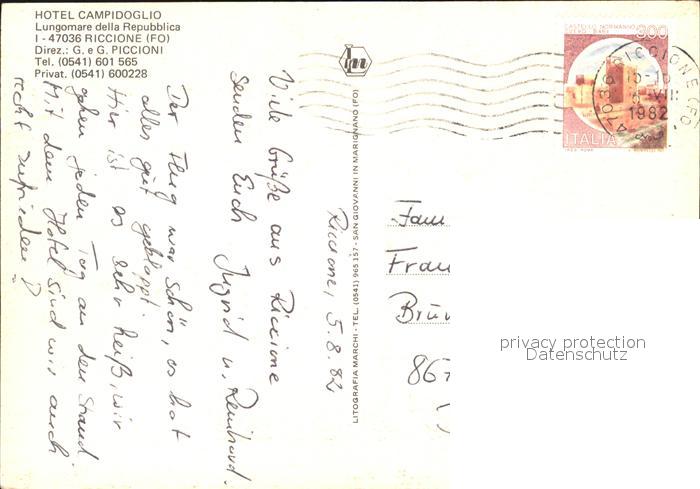 HOTEL CAMPIDOGLIO
Lungomare della Repubblica
I - 47036 RICCIONE (FO)
Direz.: G. e G. PICCIONI
Tel. (0541) 601 565
Privat. (0541) 600228
Riccione, 5.8.82
Viele Grüße aus Riccione
senden Euch Ingrid u. Reinhard.
Der Flug war schön, es hat
alles gut geklappt.
Hier ist es sehr heiß, wir
gehen jeden Tag an den Strand
Mit dem Hotel sind wir auch
recht zufrieden
LITOGRAFIA MARCHI - TEL. (0541) 965 157 - SAN GIOVANNI IN MARIGNANO (FO)
CASTELLO NORMANNO
SVEVO - BARI
300
ITALIA
47036 RICCIONE FO
1982
Fam
Frau
Brün
867
privacy protection
Datenschutz